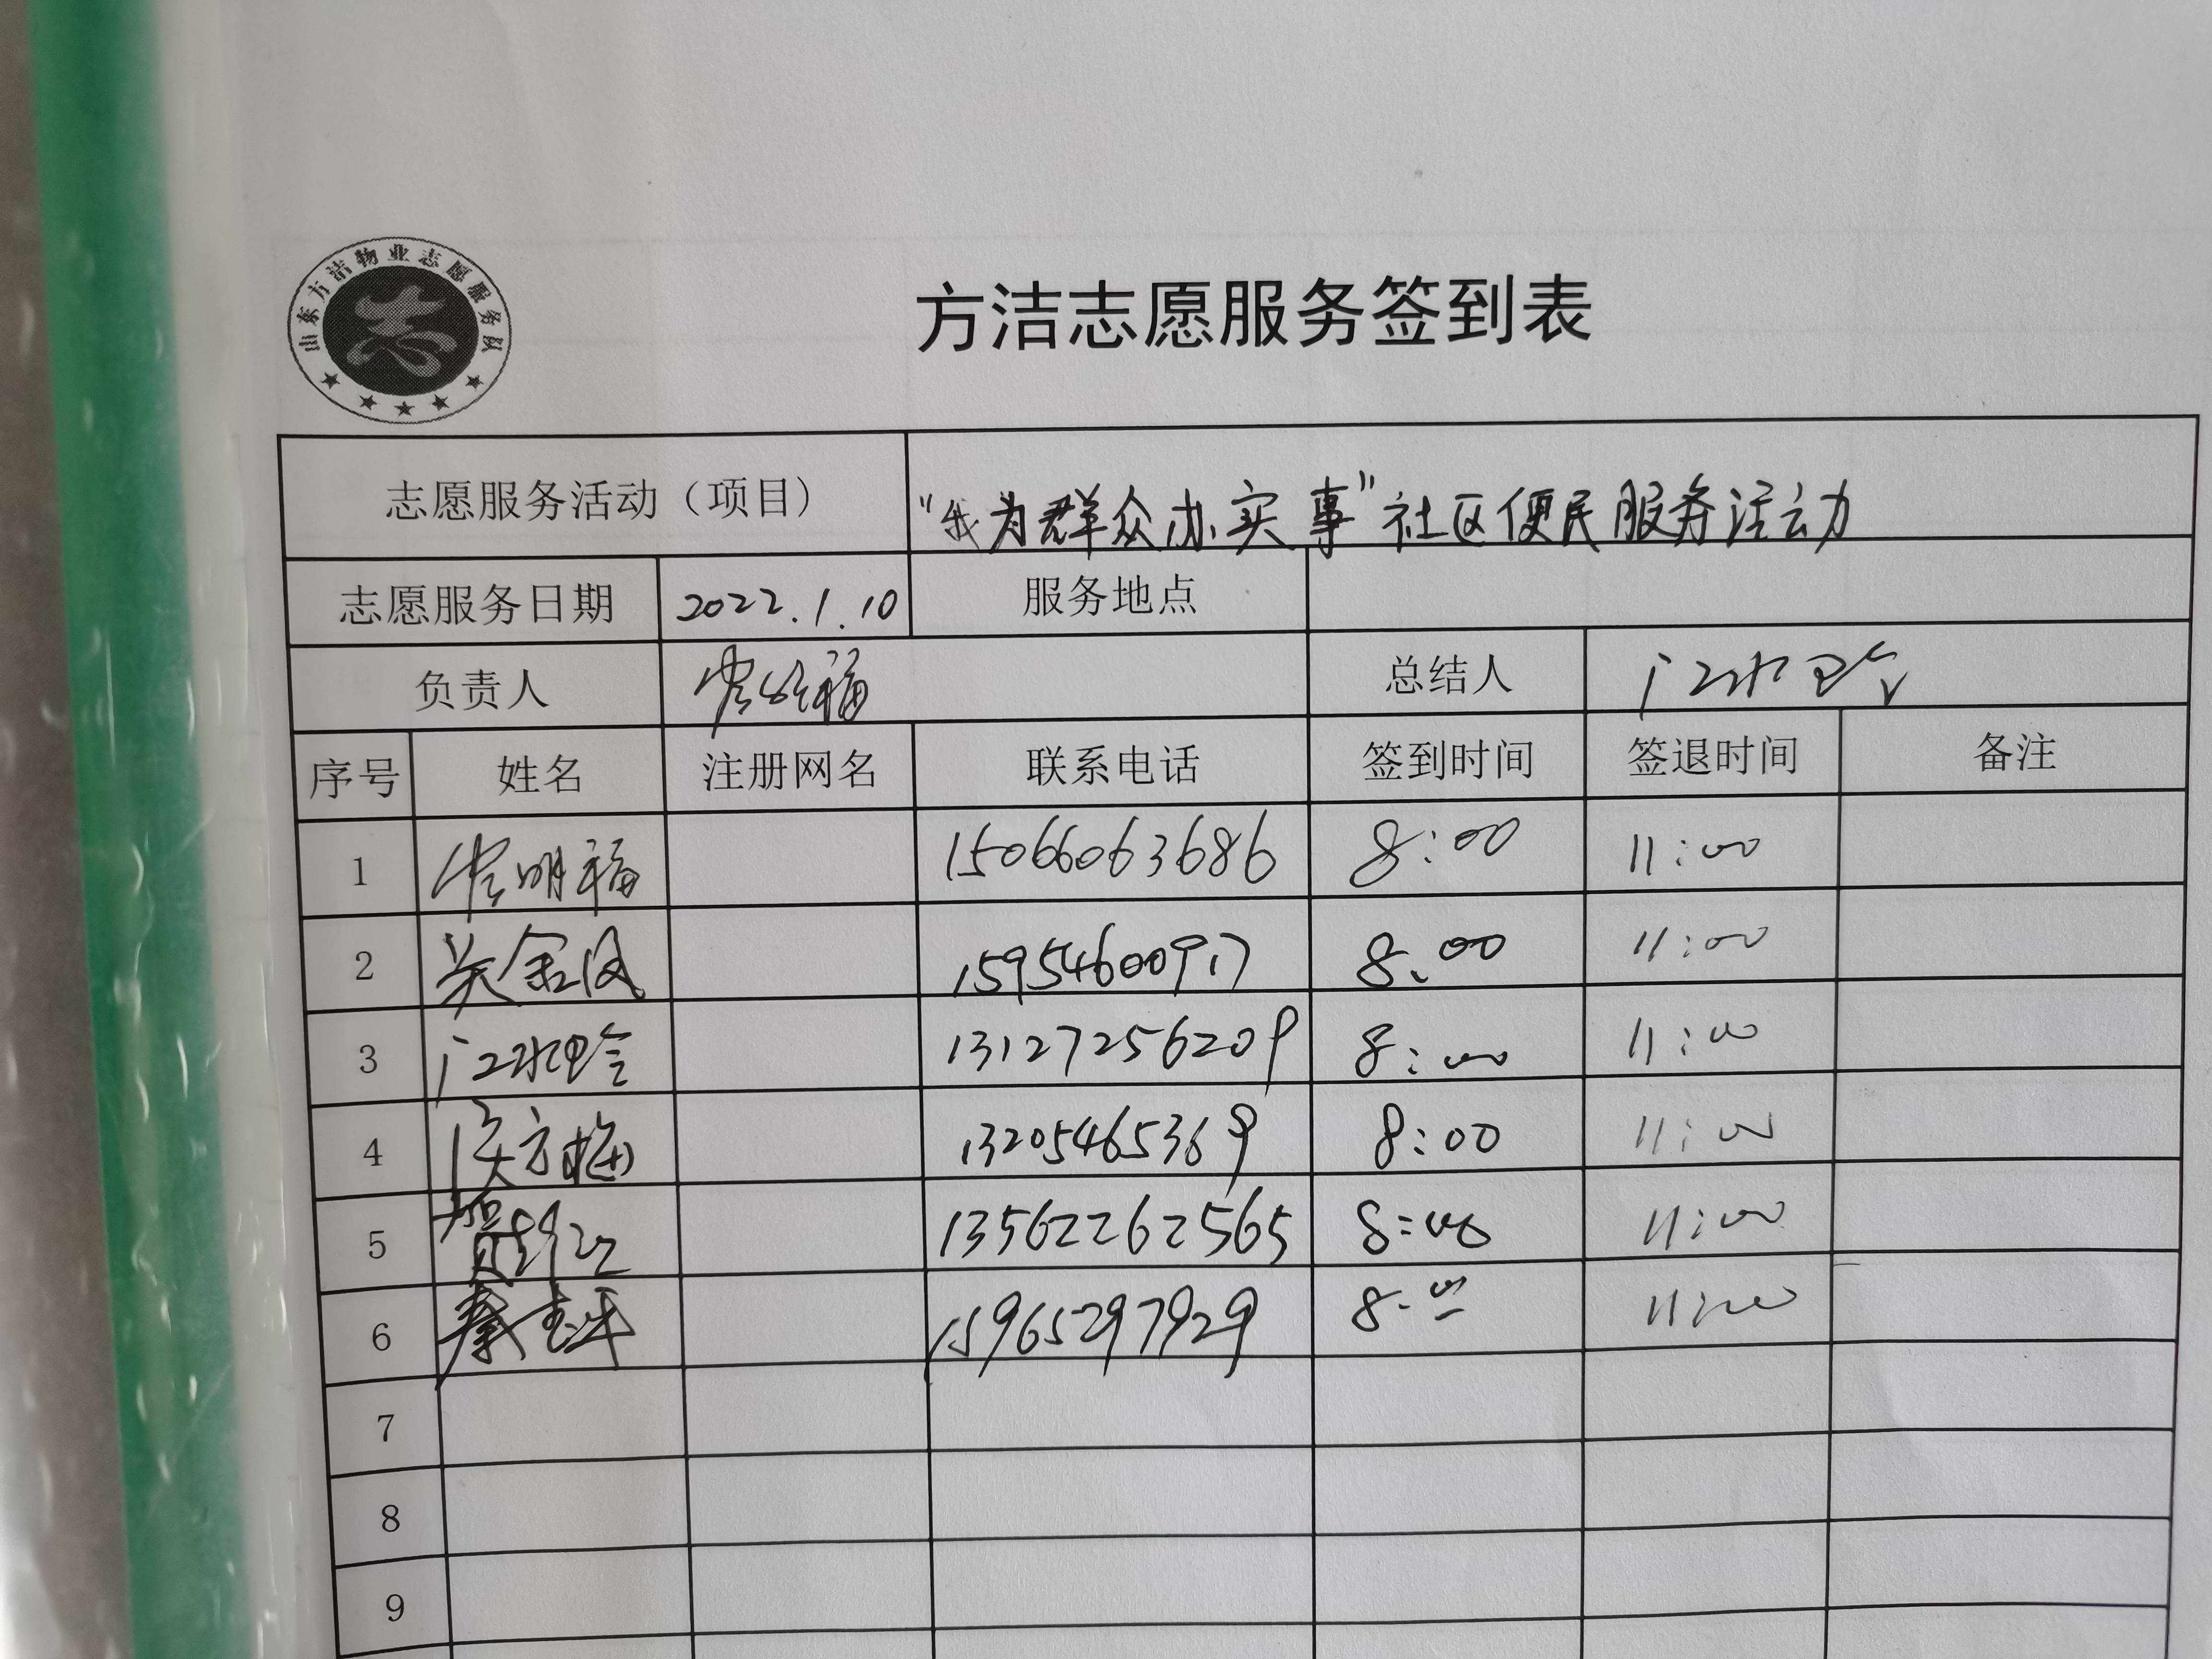 山东方洁物业志愿服务队
志
方洁志愿服务签到表
志愿服务活动（项目） “我为群众办实事”社区便民服务活动
志愿服务日期 2022.1.10 服务地点
负责人 总结人
序号 姓名 注册网名 联系电话 签到时间 签退时间 备注
1 明福 15066063686 8:00 11:00
2 金凤 15954600917 8:00 11:00
3 13127256209 8:00 11:00
4 13205465369 8:00 11:00
5 13562262565 8:00 11:00
6 15965297929 8:00 11:00
7
8
9